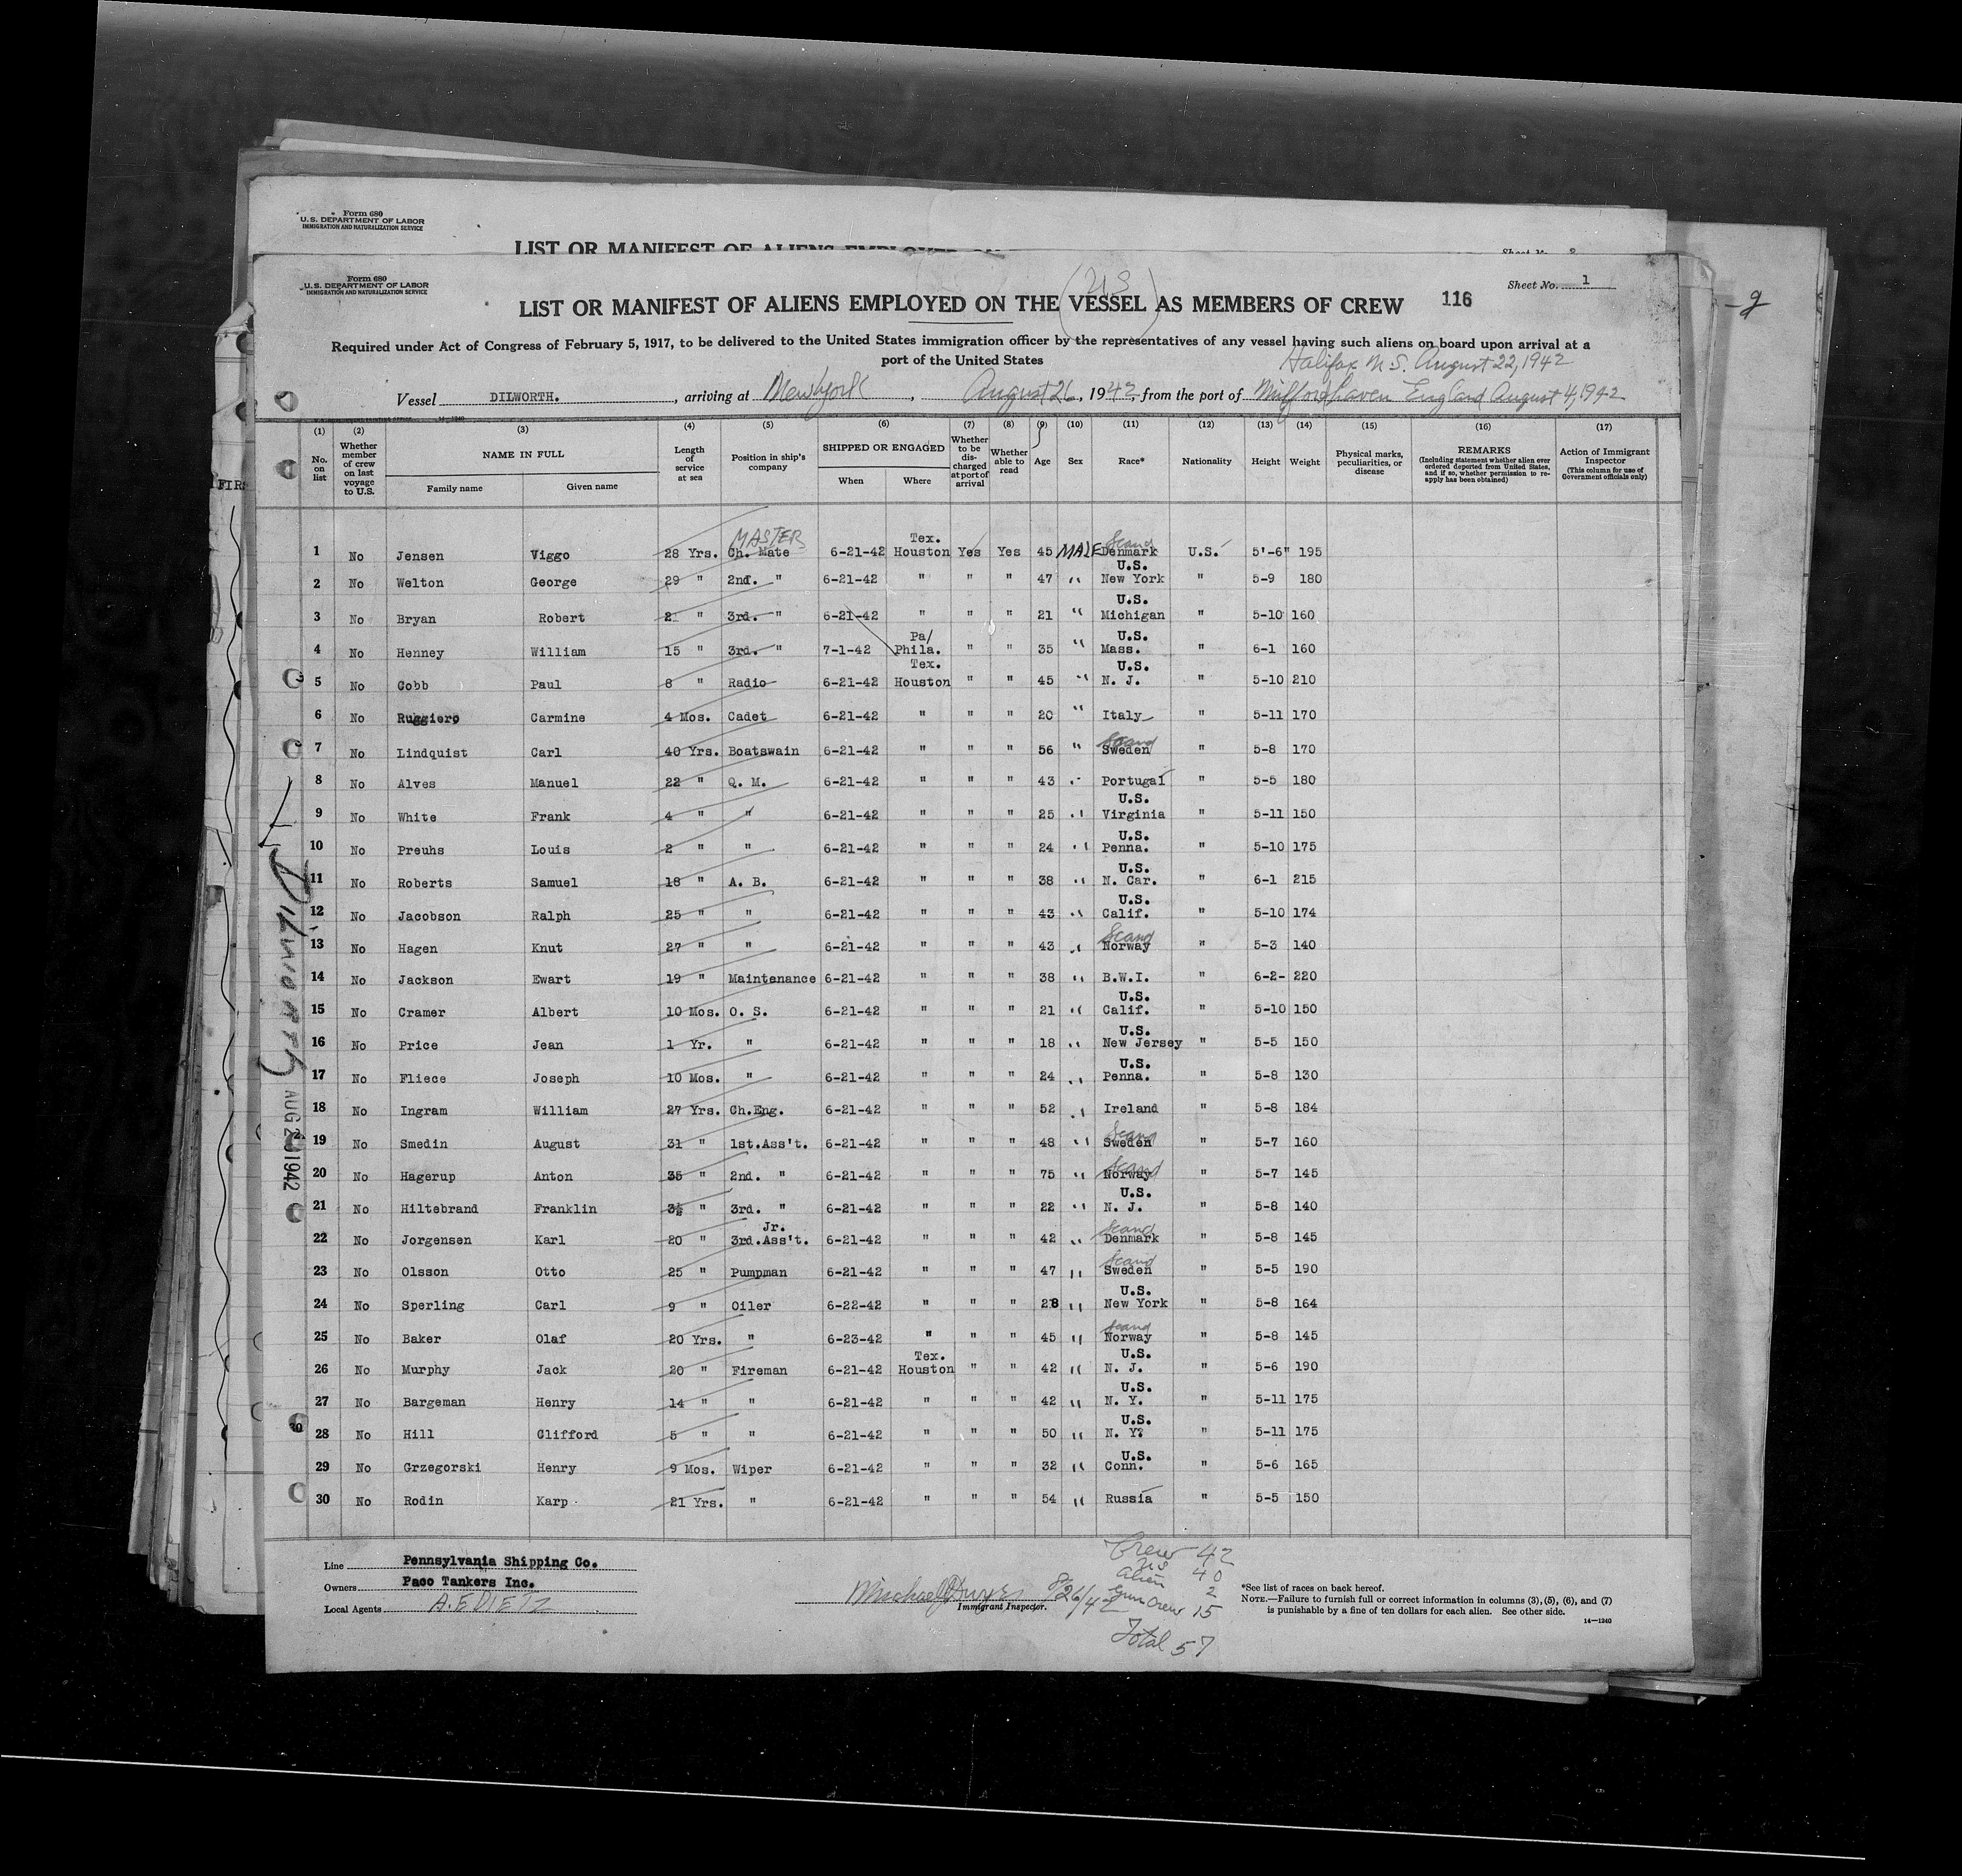 Form 680
U.S. DEPARTMENT OF LABOR
IMMIGRATION AND NATURALIZATION SERVICE
LIST OR MANIFEST OF ALIENS EMPLOYED ON
Form 680
U.S. DEPARTMENT OF LABOR
IMMIGRATION AND NATURALIZATION SERVICE
Sheet No. 1
LIST OR MANIFEST OF ALIENS EMPLOYED ON THE VESSEL AS MEMBERS OF CREW 116
Required under Act of Congress of February 5, 1917, to be delivered to the United States immigration officer by the representatives of any vessel having such aliens on board upon arrival at a
port of the United States
Halifax N.S. August 22, 1942
Vessel DILWORTH. , arriving at New York , August 26, 1942, from the port of Milford haven England August 4, 1942
(1) (2) (3) (4) (5) (6) (7) (8) (9) (10) (11) (12) (13) (14) (15) (16) (17)
No. on list
Whether member of crew on last voyage to U.S.
NAME IN FULL
Family name Given name
Length of service at sea
Position in ship's company
SHIPPED OR ENGAGED
When Where
Whether to be discharged at port of arrival
Whether able to read
Age Sex Race* Nationality Height Weight
Physical marks, peculiarities, or disease
REMARKS
(Including statement whether alien ever ordered deported from United States, and if so, whether permission to reapply has been obtained)
Action of Immigrant Inspector
(This column for use of Government officials only)
MASTER Tex. Scand
1 No Jensen Viggo 28 Yrs. Ch. Mate 6-21-42 Houston Yes Yes 45 MALE Denmark U.S. 5'-6" 195
U.S.
2 No Welton George 29 " 2nd. " 6-21-42 " " " 47 " New York " 5-9 180
U.S.
3 No Bryan Robert 2 " 3rd. " 6-21-42 " " " 21 " Michigan " 5-10 160
Pa/ U.S.
4 No Henney William 15 " 3rd. " 7-1-42 Phila. " " 35 " Mass. " 6-1 160
Tex. U.S.
5 No Cobb Paul 8 " Radio 6-21-42 Houston " " 45 " N. J. " 5-10 210
6 No Ruggiero Carmine 4 Mos. Cadet 6-21-42 " " " 20 " Italy " 5-11 170
Scand
7 No Lindquist Carl 40 Yrs. Boatswain 6-21-42 " " " 56 " Sweden " 5-8 170
8 No Alves Manuel 22 " Q. M. 6-21-42 " " " 43 " Portugal " 5-5 180
U.S.
9 No White Frank 4 " " 6-21-42 " " " 25 " Virginia " 5-11 150
U.S.
10 No Preuhs Louis 2 " " 6-21-42 " " " 24 " Penna. " 5-10 175
U.S.
11 No Roberts Samuel 18 " A. B. 6-21-42 " " " 38 " N. Car. " 6-1 215
U.S.
12 No Jacobson Ralph 25 " " 6-21-42 " " " 43 " Calif. " 5-10 174
Scand
13 No Hagen Knut 27 " " 6-21-42 " " " 43 " Norway " 5-3 140
14 No Jackson Ewart 19 " Maintenance 6-21-42 " " " 38 " B.W.I. " 6-2- 220
U.S.
15 No Cramer Albert 10 Mos. O. S. 6-21-42 " " " 21 " Calif. " 5-10 150
U.S.
16 No Price Jean 1 Yr. " 6-21-42 " " " 18 " New Jersey " 5-5 150
U.S.
17 No Fliece Joseph 10 Mos. " 6-21-42 " " " 24 " Penna. " 5-8 130
18 No Ingram William 27 Yrs. Ch.Eng. 6-21-42 " " " 52 " Ireland " 5-8 184
Scand
19 No Smedin August 31 " 1st.Ass't. 6-21-42 " " " 48 " Sweden " 5-7 160
Scand
20 No Hagerup Anton 35 " 2nd. " 6-21-42 " " " 75 " Norway " 5-7 145
U.S.
21 No Hiltebrand Franklin 3½ " 3rd. " 6-21-42 " " " 22 " N. J. " 5-8 140
Jr. Scand
22 No Jorgensen Karl 20 " 3rd.Ass't. 6-21-42 " " " 42 " Denmark " 5-8 145
Scand
23 No Olsson Otto 25 " Pumpman 6-21-42 " " " 47 " Sweden " 5-5 190
U.S.
24 No Sperling Carl 9 " Oiler 6-22-42 " " " 28 " New York " 5-8 164
Scand
25 No Baker Olaf 20 Yrs. " 6-23-42 " " " 45 " Norway " 5-8 145
Tex. U.S.
26 No Murphy Jack 20 " Fireman 6-21-42 Houston " " 42 " N. J. " 5-6 190
U.S.
27 No Bargeman Henry 14 " " 6-21-42 " " " 42 " N. Y. " 5-11 175
U.S.
28 No Hill Clifford 5 " " 6-21-42 " " " 50 " N. Y? " 5-11 175
U.S.
29 No Grzegorski Henry 9 Mos. Wiper 6-21-42 " " " 32 " Conn. " 5-6 165
30 No Rodin Karp 21 Yrs. " 6-21-42 " " " 54 " Russia " 5-5 150
Dilworth
AUG 26 1942
Line Pennsylvania Shipping Co.
Owners Paco Tankers Inc.
Local Agents A.E DIETZ
Michael J Dwyer 8/26/42
Immigrant Inspector.
Crew 42
US 40
Alien 2
Gun Crew 15
Total 57
*See list of races on back hereof.
NOTE.—Failure to furnish full or correct information in columns (3), (5), (6), and (7)
is punishable by a fine of ten dollars for each alien. See other side.
14—1240